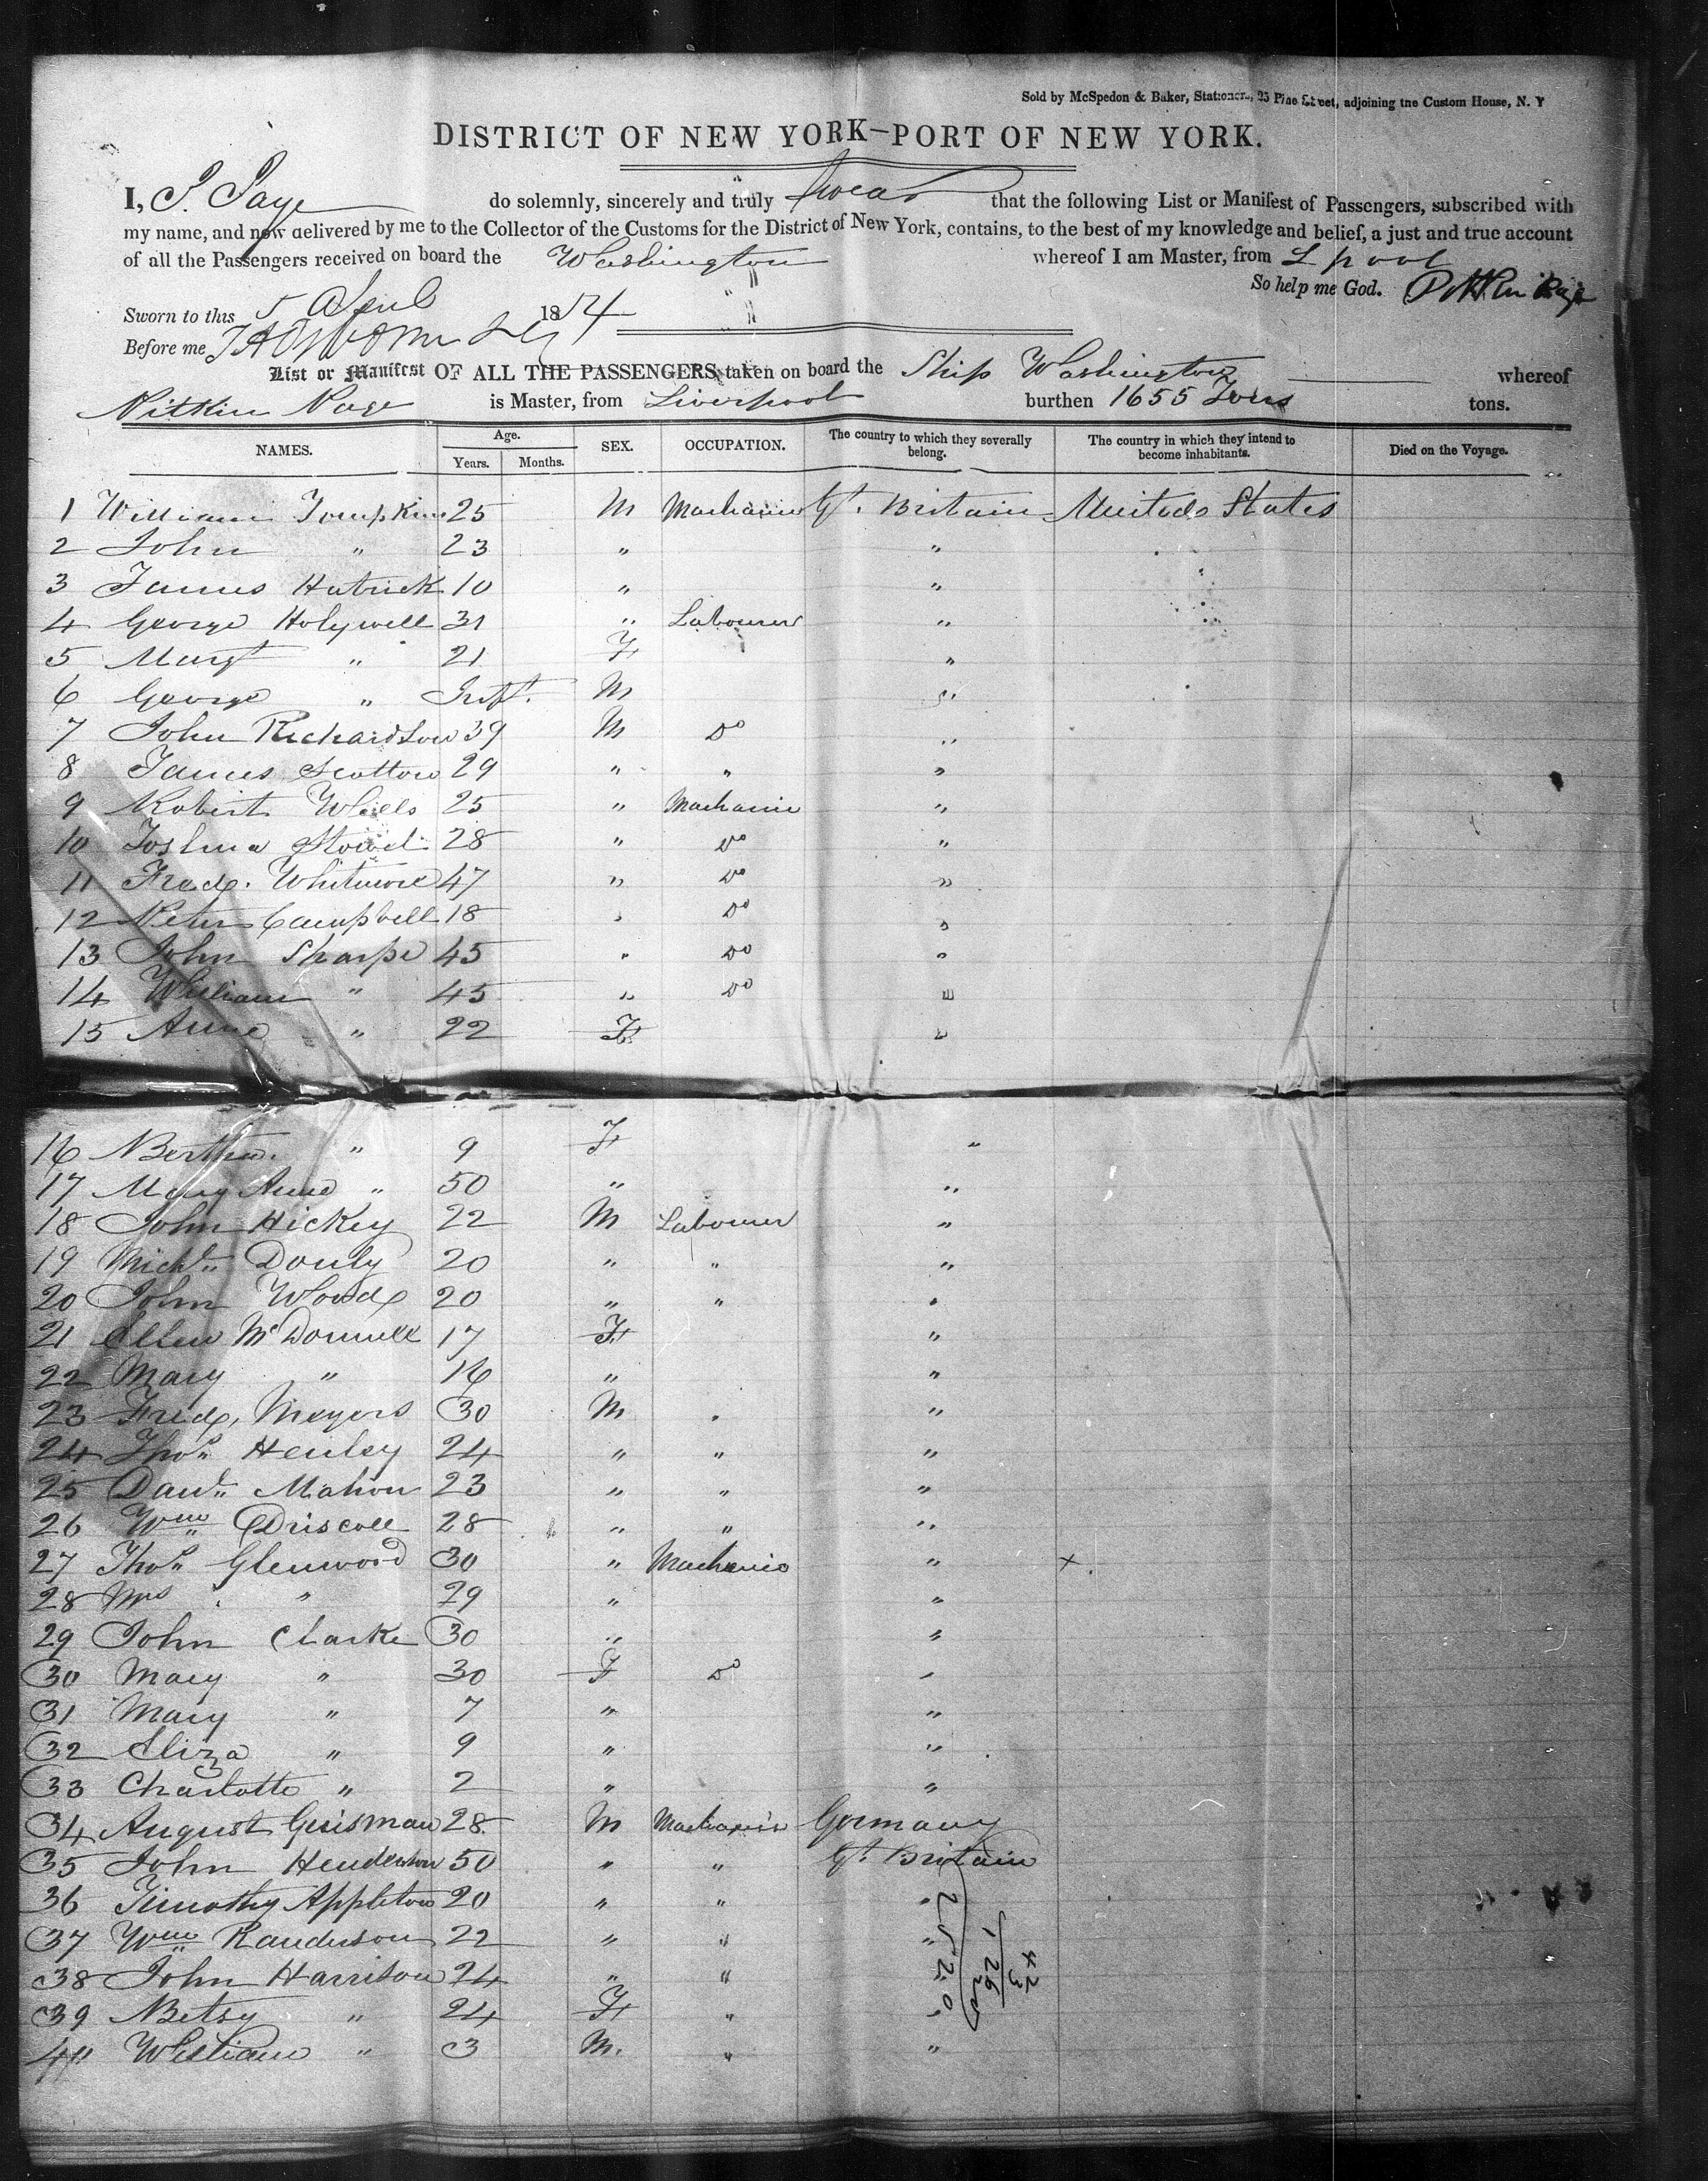 Sold by McSpedon & Baker, Stationers, 25 Pine Street, adjoining the Custom House, N. Y
DISTRICT OF NEW YORK—PORT OF NEW YORK.
I, P. Page do solemnly, sincerely and truly swear that the following List or Manifest of Passengers, subscribed with
my name, and now delivered by me to the Collector of the Customs for the District of New York, contains, to the best of my knowledge and belief, a just and true account
of all the Passengers received on board the Washington whereof I am Master, from L pool
So help me God. Page
Sworn to this 5 April 1854
Before me
List or Manifest OF ALL THE PASSENGERS taken on board the Ship Washington whereof
Pitkin Page is Master, from Liverpool burthen 1655 Tons tons.
NAMES. Age. Years. Months. SEX. OCCUPATION. The country to which they severally belong. The country in which they intend to become inhabitants. Died on the Voyage.
1 William Tompkins 25 M Mechanic Gt. Britain United States
2 John " 23 " "
3 James Hatrick 10 " "
4 George Holywell 31 " Labourer "
5 Margt " 21 F "
6 George " Inft. M "
7 John Richardson 39 M Do "
8 James Scotton 29 " " "
9 Robert Wells 25 " Mechanic "
10 Joshua 28 " Do "
11 Fredk. Whitmore 47 " Do "
12 Peter Campbell 18 " Do "
13 John Sharpe 45 " Do "
14 William " 45 " Do "
15 Anne " 22 F "
16 Bertha " 9 F "
17 Mary Anne " 50 " "
18 John Hickey 22 M Labourer "
19 Michl. Donly 20 " " "
20 John Woods 20 " " "
21 Ellen McDonnell 17 F "
22 Mary " 16 " "
23 Fredk. Meyers 30 M " "
24 Thos. Henley 24 " " "
25 Danl. Mahon 23 " " "
26 Wm. Driscoll 28 " " "
27 Thos. Glenwood 30 " Mechanic " x
28 Mrs " 29 " "
29 John Clarke 30 " "
30 Mary " 30 F Do "
31 Mary " 7 " "
32 Eliza " 9 " "
33 Charlotte " 2 " "
34 August Guisman 28 M Mechanic Germany
35 John Henderson 50 " " Gt. Britain
36 Timothy Appleton 20 " " "
37 Wm. Randerson 22 " " "
38 John Harrison 24 " " "
39 Betsy " 24 F " "
40 William " 3 M. " "